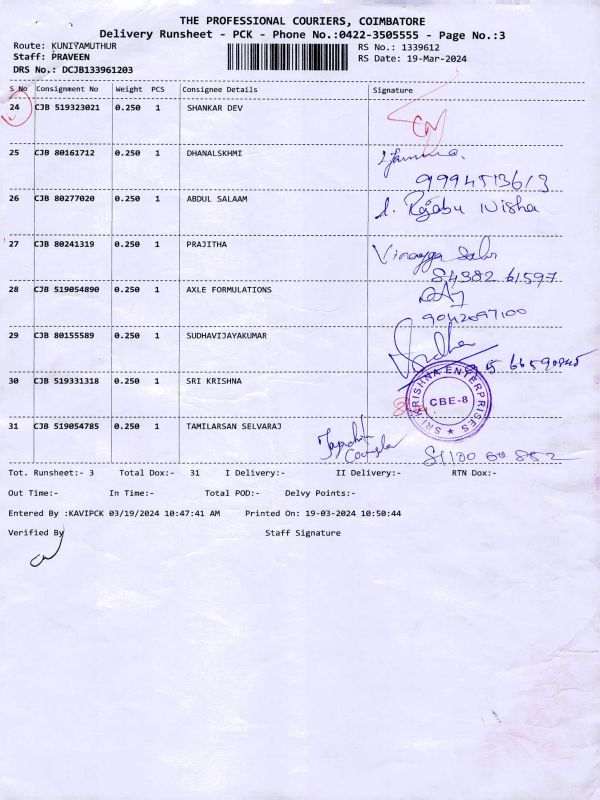 THE PROFESSIONAL COURIERS, COIMBATORE
Delivery Runsheet - PCK - Phone No.:0422-3505555 - Page No.:3
Route: KUNIYAMUTHUR
RS No.: 1339612
Staff: PRAVEEN
RS Date: 19-Mar-2024
DRS No.: DCJB133961203
S No Consignment No Weight PCS Consignee Details Signature
24 CJB 519323021 0.250 1 SHANKAR DEV
25 CJB 80161712 0.250 1 DHANALSKHMI
26 CJB 80277020 0.250 1 ABDUL SALAAM
Rajabu Nisha
27 CJB 80241319 0.250 1 PRAJITHA
84382 61597
28 CJB 519054890 0.250 1 AXLE FORMULATIONS
9042697100
29 CJB 80155589 0.250 1 SUDHAVIJAYAKUMAR
30 CJB 519331318 0.250 1 SRI KRISHNA
SRI KRISHNA ENTERPRISES
CBE-8
31 CJB 519054785 0.250 1 TAMILARSAN SELVARAJ
Tot. Runsheet:- 3 Total Dox:- 31 I Delivery:- II Delivery:- RTN Dox:-
Out Time:- In Time:- Total POD:- Delvy Points:-
Entered By :KAVIPCK 03/19/2024 10:47:41 AM Printed On: 19-03-2024 10:50:44
Verified By Staff Signature